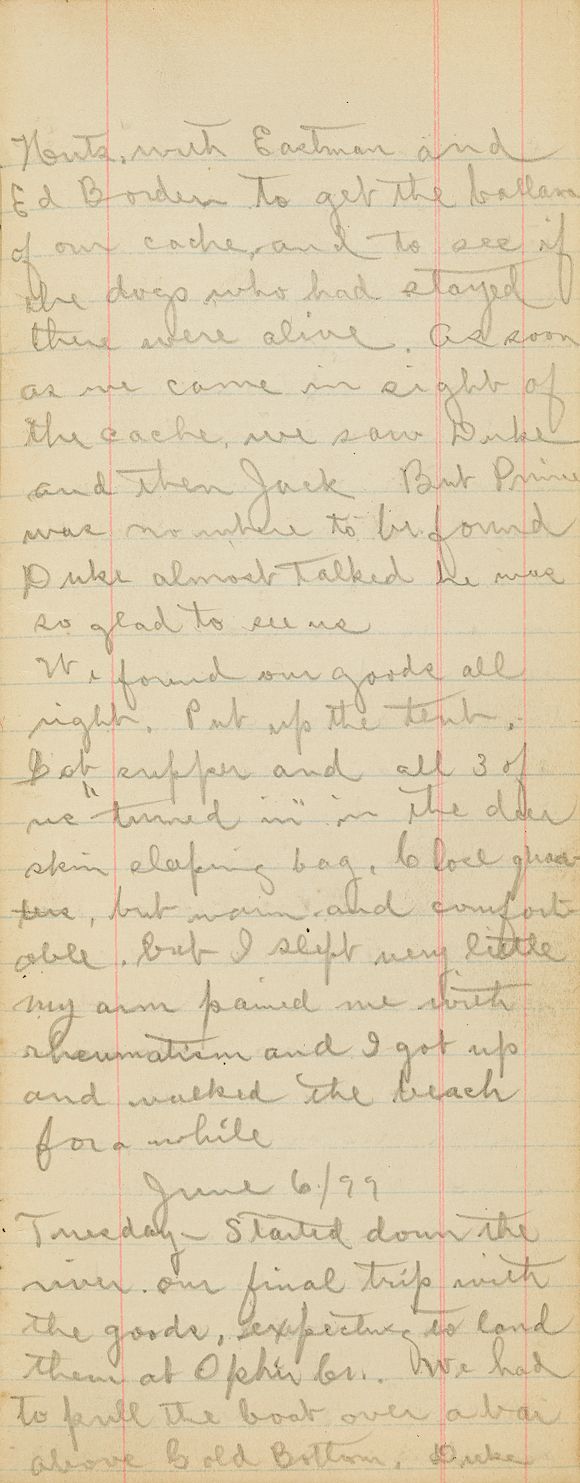 with Eastman and
Ed Borden to get the
of our cache, and to see if
the dogs who had stayed
there were alive. As soon
as we came in sight of
the cache, we saw Duke
and then Jack But Prince
was no where to be found
Duke almost talked he was
so glad to see us
We found our goods all
right. Put up the tent.
Eat supper and all 3 of
us "turned in" in the deer
skin sleping bag. Close quar-
ters, but warm and comfort-
able. but I slept very little
My arm pained me with
rheumatism and I got up
and walked the beach
for a while
June 6/99
Tuesday - Started down the
river. our final trip with
the goods, expecting to land
them at Ophir Cr. We had
to pull the boat over a bar
above Gold Bottom. Duke